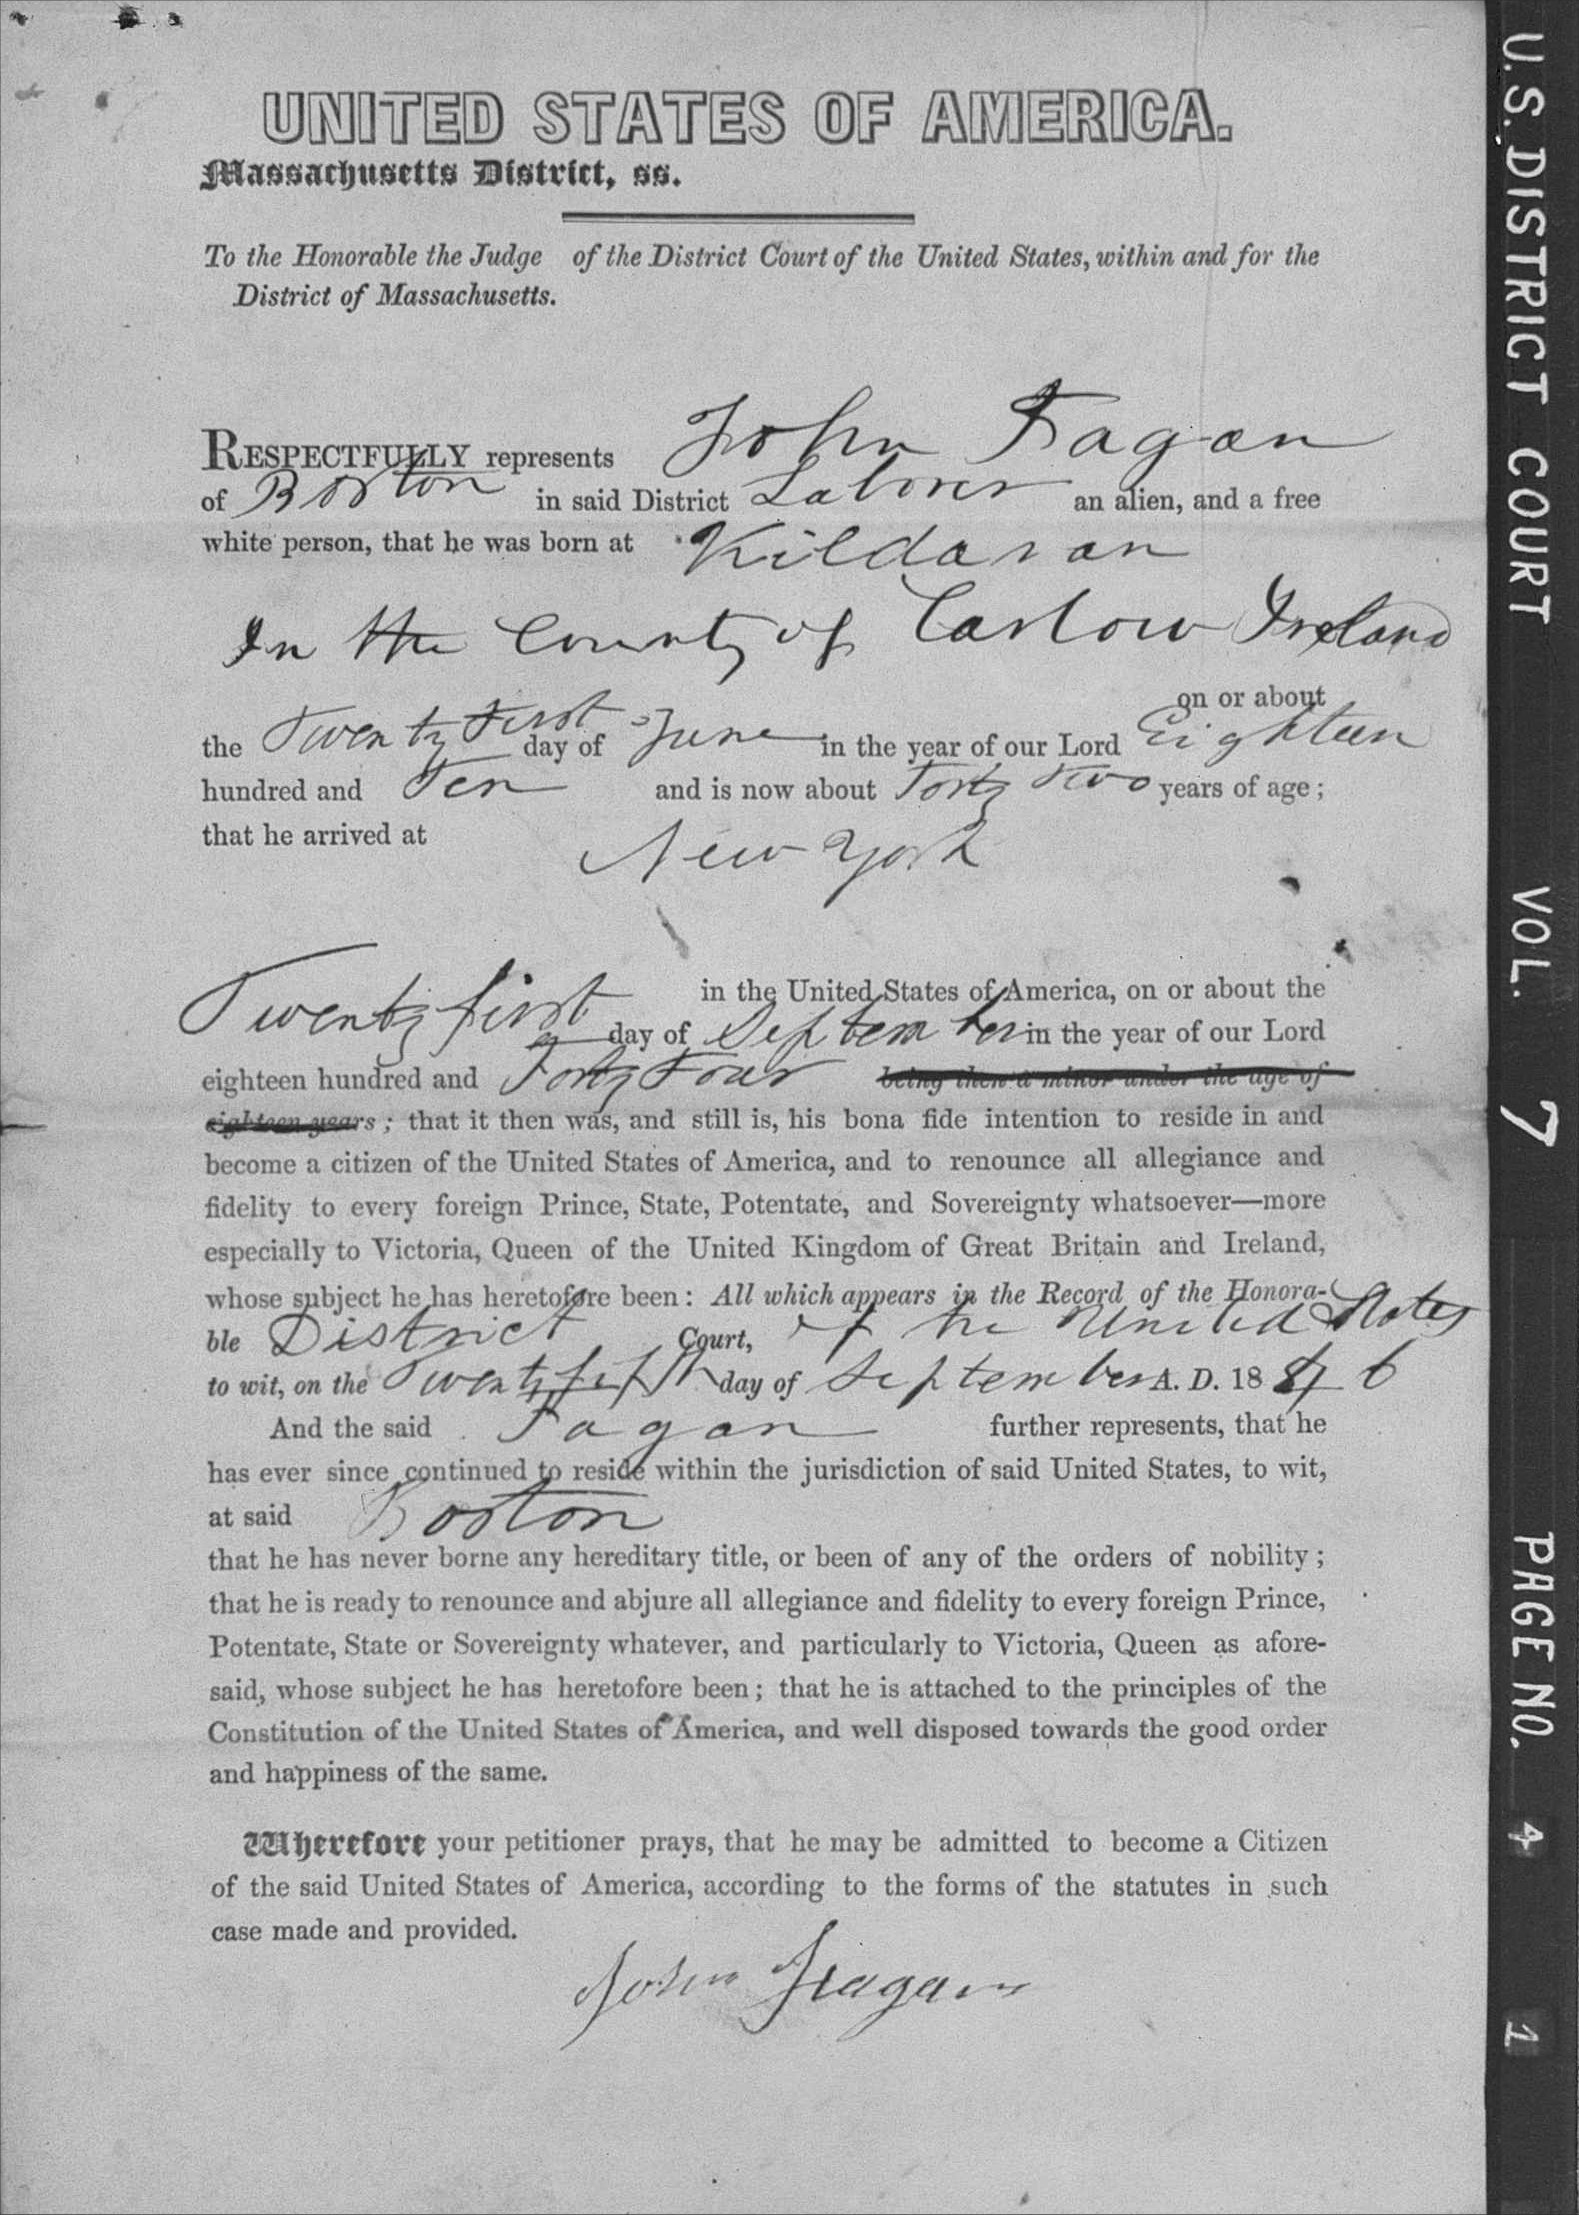 UNITED STATES OF AMERICA.
Massachusetts District, ss.
To the Honorable the Judge of the District Court of the United States, within and for the
District of Massachusetts.
RESPECTFULLY represents John Fagan
of Boston in said District Laborer an alien, and a free
white person, that he was born at Kildavan
In the County of Carlow Ireland
on or about
the Twenty First day of June in the year of our Lord Eighteen
hundred and Ten and is now about Forty Two years of age;
that he arrived at New York
in the United States of America, on or about the
Twenty first day of September in the year of our Lord
eighteen hundred and Forty Four being then a minor under the age of
eighteen years; that it then was, and still is, his bona fide intention to reside in and
become a citizen of the United States of America, and to renounce all allegiance and
fidelity to every foreign Prince, State, Potentate, and Sovereignty whatsoever—more
especially to Victoria, Queen of the United Kingdom of Great Britain and Ireland,
whose subject he has heretofore been: All which appears in the Record of the Honora-
ble District Court, of the United States
to wit, on the Twenty fifth day of September A. D. 1846
And the said Fagan further represents, that he
has ever since continued to reside within the jurisdiction of said United States, to wit,
at said Boston
that he has never borne any hereditary title, or been of any of the orders of nobility;
that he is ready to renounce and abjure all allegiance and fidelity to every foreign Prince,
Potentate, State or Sovereignty whatever, and particularly to Victoria, Queen as afore-
said, whose subject he has heretofore been; that he is attached to the principles of the
Constitution of the United States of America, and well disposed towards the good order
and happiness of the same.
Wherefore your petitioner prays, that he may be admitted to become a Citizen
of the said United States of America, according to the forms of the statutes in such
case made and provided.
John Feagan
U.S. DISTRICT COURT VOL. 7 PAGE NO. 4 1